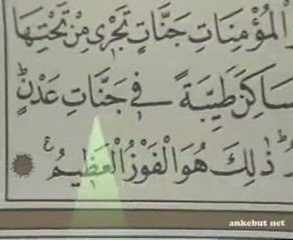 الْمُؤْمِنَاتِ جَنَّاتٍ تَجْرِى مِنْ تَحْتِهَا
سَاكِنَ طَيِّبَةً فِى جَنَّاتِ عَدْنٍ
ذٰلِكَ هُوَ الْفَوْزُ الْعَظِيمُ
ankebut net